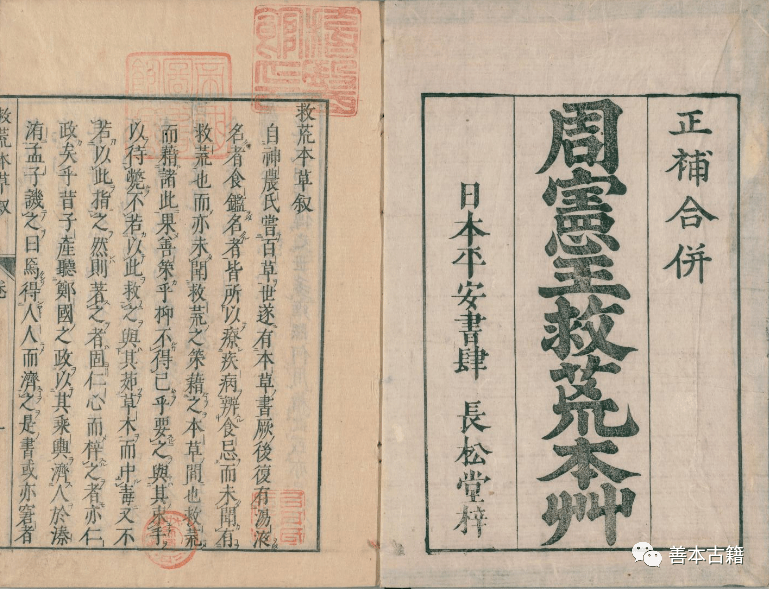 正補合併
周憲王救荒本艸
日本平安書肆 長松堂梓
救荒本草叙
自神農氏嘗百草世遂有本草書厥後復有湯液
名者食鑑名者皆所以療疾病辨食忌而未聞有
救荒也而亦未聞救荒之策藉之本草間也救荒
而藉諸此果善策乎抑不得已乎要之與其束手
以待斃不若以此救之與其茹草木而中毒又不
若以此指之然則著之者固仁心而梓之者亦仁
政矣乎昔子產聽鄭國之政以其乘輿濟人於溱
洧孟子譏之曰焉得人人而濟之是書或亦窘者
救荒本草叙
善本古籍